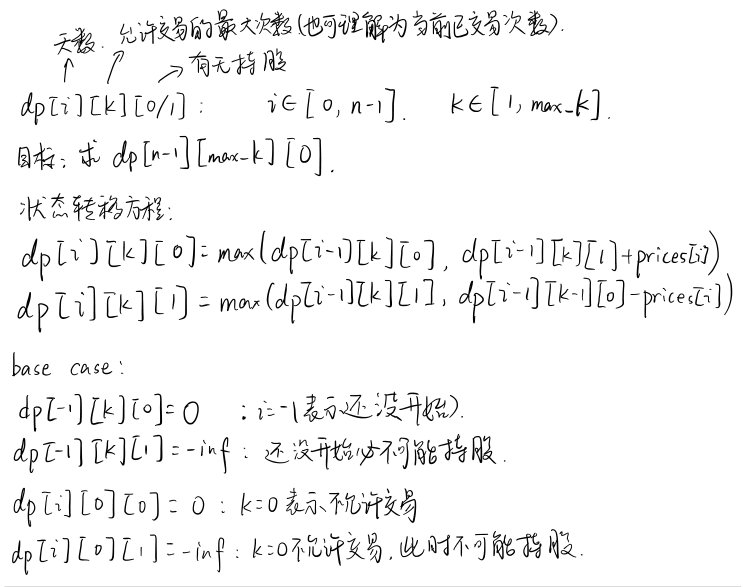 天数. 允许交易的最大次数(也可理解为当前已交易次数).
有无持股
dp[i][k][0/1] : i∈[0, n-1]. k∈[1, max_k].
目标: 求 dp[n-1][max_k][0].
状态转移方程:
dp[i][k][0] = max(dp[i-1][k][0], dp[i-1][k][1]+prices[i])
dp[i][k][1] = max(dp[i-1][k][1], dp[i-1][k-1][0]-prices[i])
base case:
dp[-1][k][0] = 0 : i=-1表示还没开始).
dp[-1][k][1] = -inf : 还没开始必不可能持股.
dp[i][0][0] = 0 : k=0表示不允许交易
dp[i][0][1] = -inf : k=0不允许交易, 此时不可能持股.